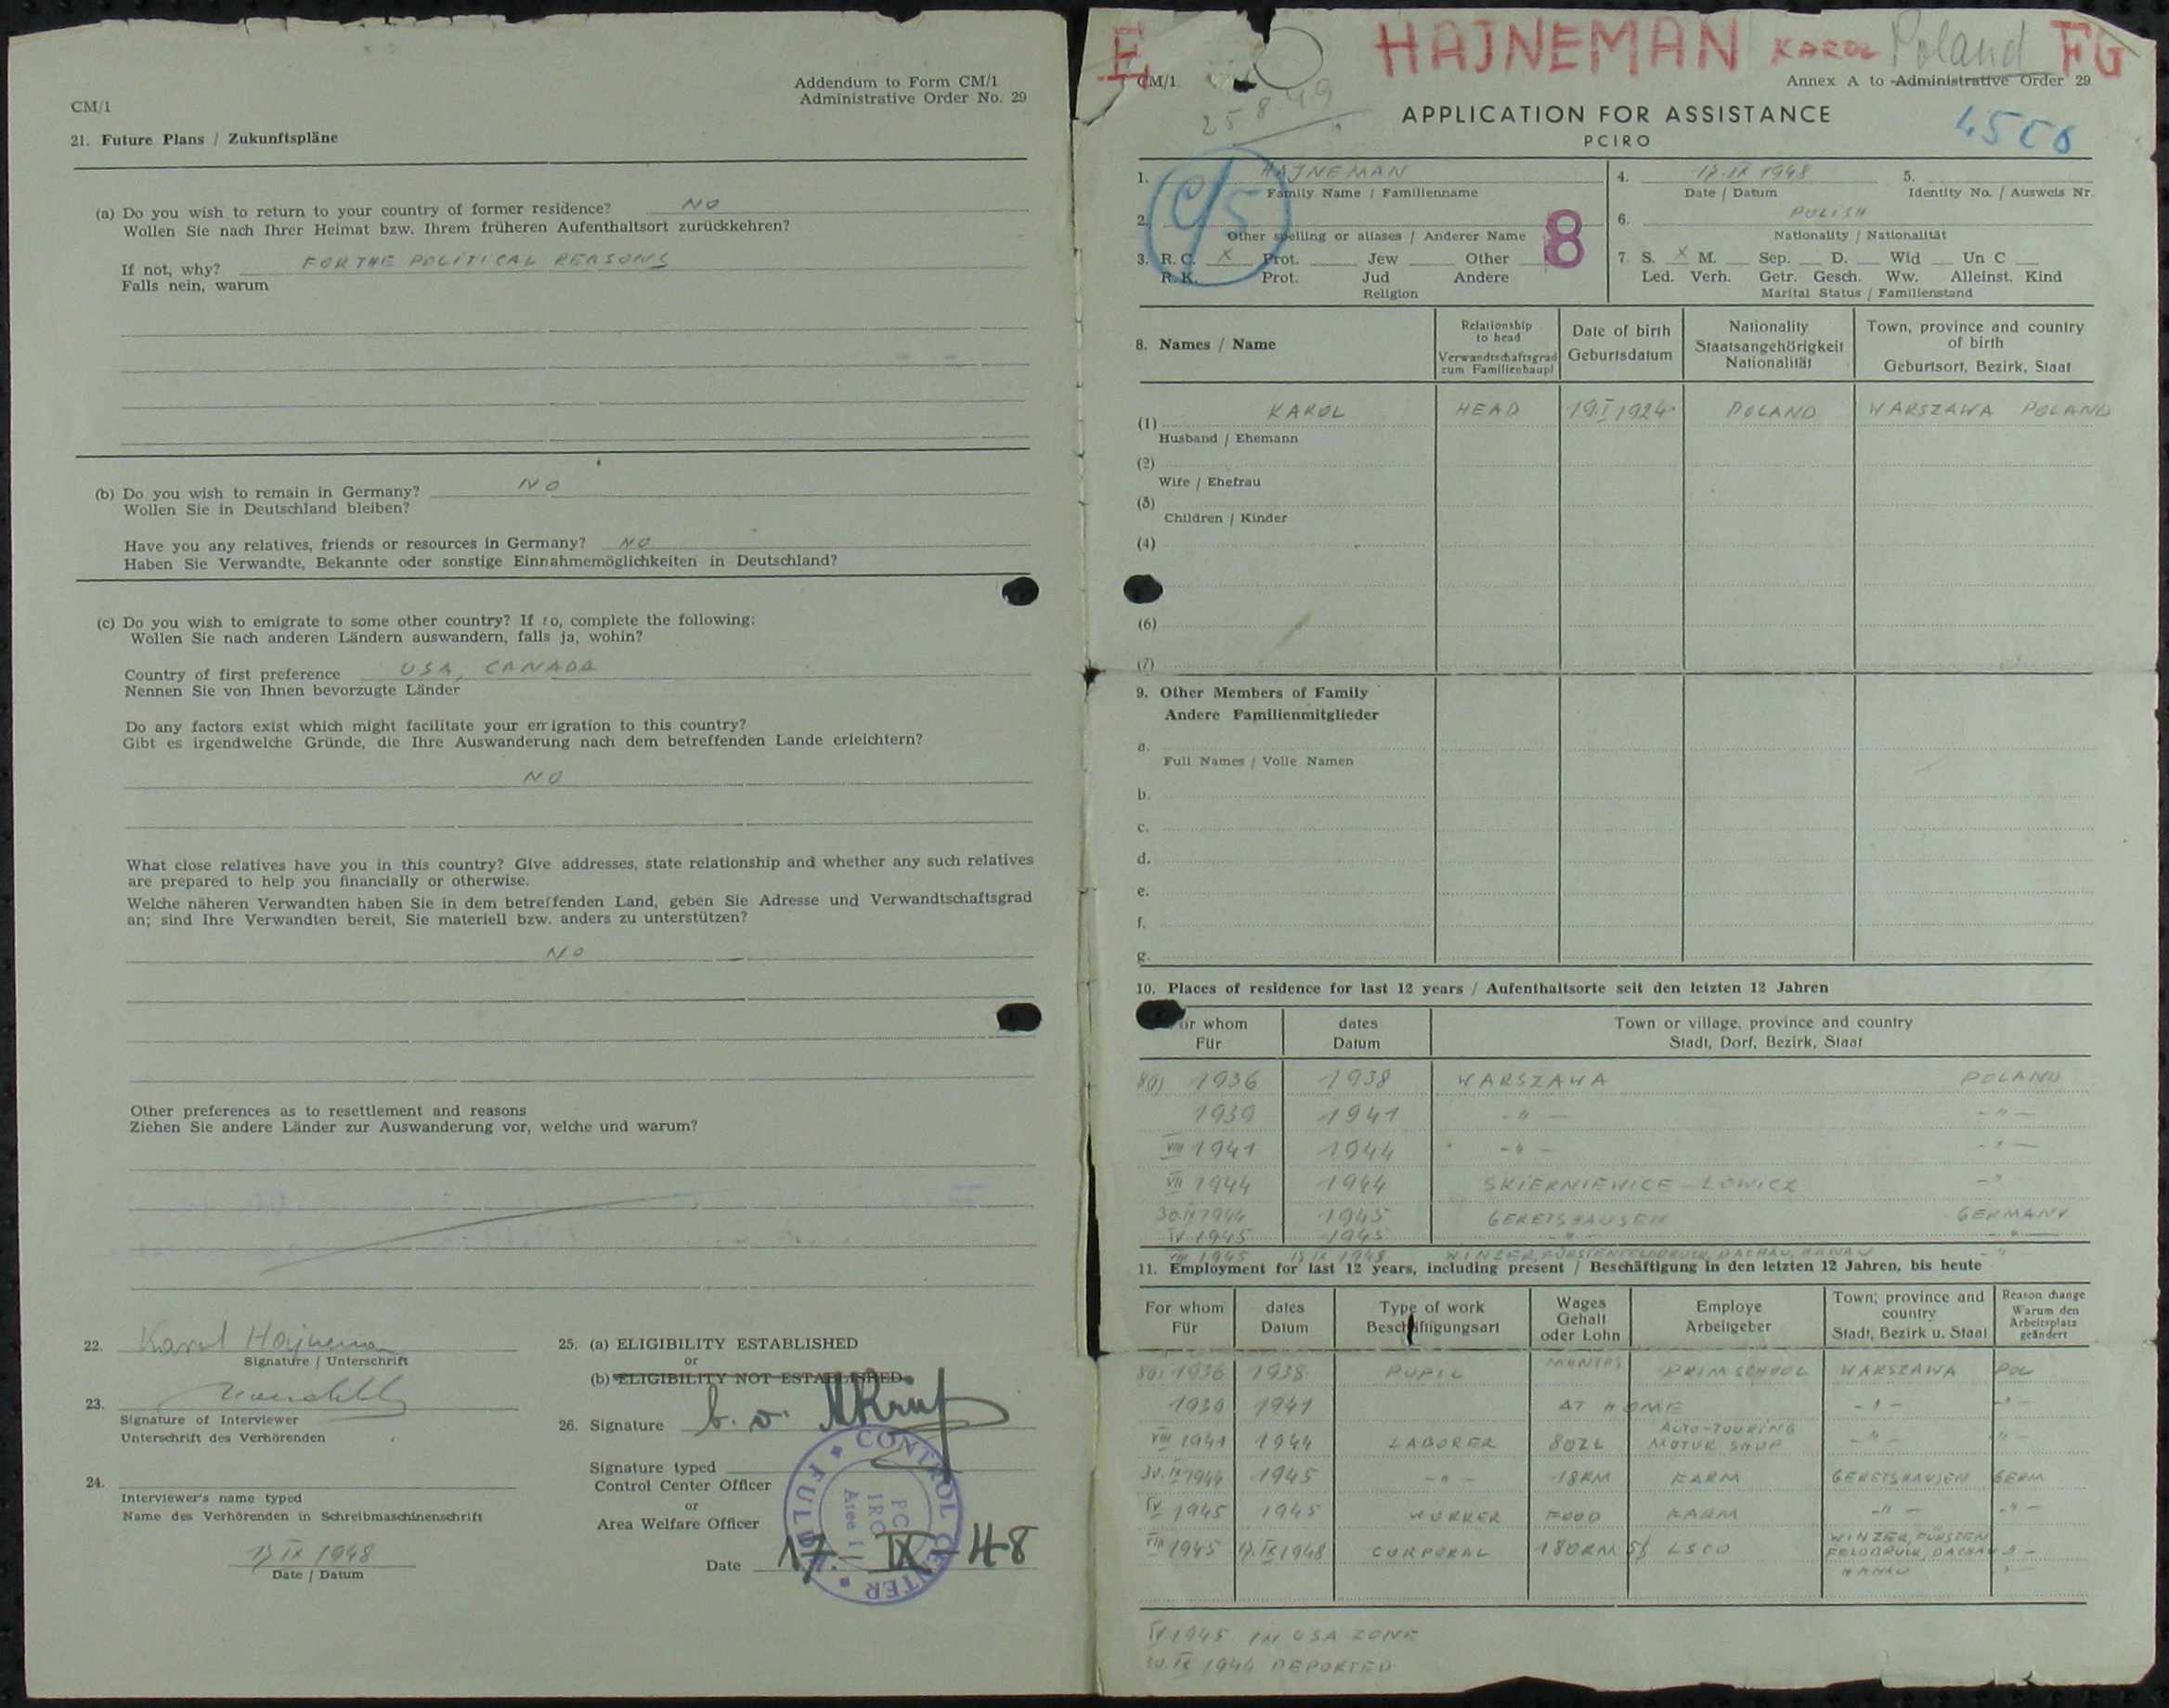 CM/1
Addendum to Form CM/1
Administrative Order No. 29
21. Future Plans / Zukunftspläne
(a) Do you wish to return to your country of former residence? NO
Wollen Sie nach Ihrer Heimat bzw. Ihrem früheren Aufenthaltsort zurückkehren?
If not, why? FOR THE POLITICAL REASONS
Falls nein, warum
(b) Do you wish to remain in Germany? NO
Wollen Sie in Deutschland bleiben?
Have you any relatives, friends or resources in Germany? NO
Haben Sie Verwandte, Bekannte oder sonstige Einnahmemöglichkeiten in Deutschland?
(c) Do you wish to emigrate to some other country? If so, complete the following:
Wollen Sie nach anderen Ländern auswandern, falls ja, wohin?
Country of first preference USA, CANADA
Nennen Sie von Ihnen bevorzugte Länder
Do any factors exist which might facilitate your emigration to this country?
Gibt es irgendwelche Gründe, die Ihre Auswanderung nach dem betreffenden Lande erleichtern?
NO
What close relatives have you in this country? Give addresses, state relationship and whether any such relatives
are prepared to help you financially or otherwise.
Welche näheren Verwandten haben Sie in dem betreffenden Land, geben Sie Adresse und Verwandtschaftsgrad
an; sind Ihre Verwandten bereit, Sie materiell bzw. anders zu unterstützen?
NO
Other preferences as to resettlement and reasons
Ziehen Sie andere Länder zur Auswanderung vor, welche und warum?
22. Karol Hajneman
Signature / Unterschrift
23.
Signature of Interviewer
Unterschrift des Verhörenden
24.
Interviewer's name typed
Name des Verhörenden in Schreibmaschinenschrift
17 IX 1948
Date / Datum
25. (a) ELIGIBILITY ESTABLISHED
or
(b) ELIGIBILITY NOT ESTABLISHED
26. Signature
Signature typed
Control Center Officer
or
Area Welfare Officer
Date 17. IX - 48
CONTROL CENTER FULDA
PC
IRO
Area 1
E HAJNEMAN KAROL Poland FG
CM/1
Annex A to Administrative Order 29
25 8 49
APPLICATION FOR ASSISTANCE
PCIRO
1. HAJNEMAN
Family Name / Familienname
4. 17.IX 1948
Date / Datum
5.
Identity No. / Ausweis Nr.
2.
Other spelling or aliases / Anderer Name
8
6. POLISH
Nationality / Nationalität
3. R. C. X Prot. Jew Other
R. K. Prot. Jud Andere
Religion
7. S. X M. Sep. D. Wid Un C
Led. Verh. Getr. Gesch. Ww. Alleinst. Kind
Marital Status / Familienstand
8. Names / Name
Relationship to head
Verwandtschaftsgrad zum Familienhaupt
Date of birth
Geburtsdatum
Nationality
Staatsangehörigkeit
Nationalität
Town, province and country of birth
Geburtsort, Bezirk, Staat
(1) KAROL HEAD 19.I 1924 POLAND WARSZAWA POLAND
Husband / Ehemann
(2)
Wife / Ehefrau
(3)
Children / Kinder
(4)
(6)
(7)
9. Other Members of Family
Andere Familienmitglieder
a.
Full Names / Volle Namen
b.
c.
d.
e.
f.
g.
10. Places of residence for last 12 years / Aufenthaltsorte seit den letzten 12 Jahren
or whom
Für
dates
Datum
Town or village, province and country
Stadt, Dorf, Bezirk, Staat
1936 1938 WARSZAWA POLAND
1939 1941 - " - - " -
VIII 1941 1944 - " - - " -
VII 1944 1944 SKIERNIEWICE - LOWICZ - "
30.IX 1944 1945 GERETSHAUSEN GERMANY
IV 1945 1945 - " - - " -
VIII 1945 17 IX 1948 WINZER, FÜRSTENFELDBRUCK, DACHAU, HANAU - "
11. Employment for last 12 years, including present / Beschäftigung in den letzten 12 Jahren, bis heute
For whom
Für
dates
Datum
Type of work
Beschäftigungsart
Wages
Gehalt
oder Lohn
Employe
Arbeitgeber
Town; province and country
Stadt, Bezirk u. Staat
Reason change
Warum den
Arbeitsplatz
geändert
1936 1938 PUPIL PRIM SCHOOL WARSZAWA POL
1939 1941 AT HOME - " - - " -
VIII 1941 1944 LABORER 80ZL AUTO-TOURING MOTOR SHOP - " - - " -
30.IX 1944 1945 - " - 18RM FARM GERETSHAUSEN GERM
IV 1945 1945 WORKER FOOD FARM - " - - " -
VIII 1945 17.IX 1948 CORPORAL 180RM LSCO WINZER, FÜRSTEN
FELDBRUCK, DACHAU - " -
HANAU
IV 1945 IN USA ZONE
30. IX 1944 DEPORTED